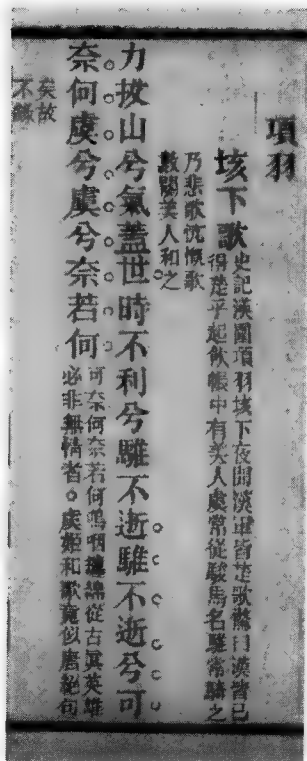 項羽
垓下歌 史記漢圍項羽垓下夜聞漢軍皆楚歌驚曰漢皆已
得楚乎起飲帳中有美人虞常從駿馬名騅常騎之
乃悲歌忼慨歌
數闋美人和之
力拔山兮氣蓋世時不利兮騅不逝騅不逝兮可
奈何虞兮虞兮奈若何 可奈何奈若何嗚咽纏綿從古眞英雄
必非無情者。虞姬和歌竟似唐絕句
矣故
不錄